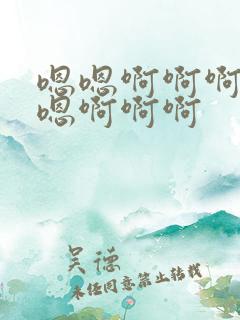 嗯嗯啊啊啊
嗯啊啊啊
吴德
未经同意禁止转载